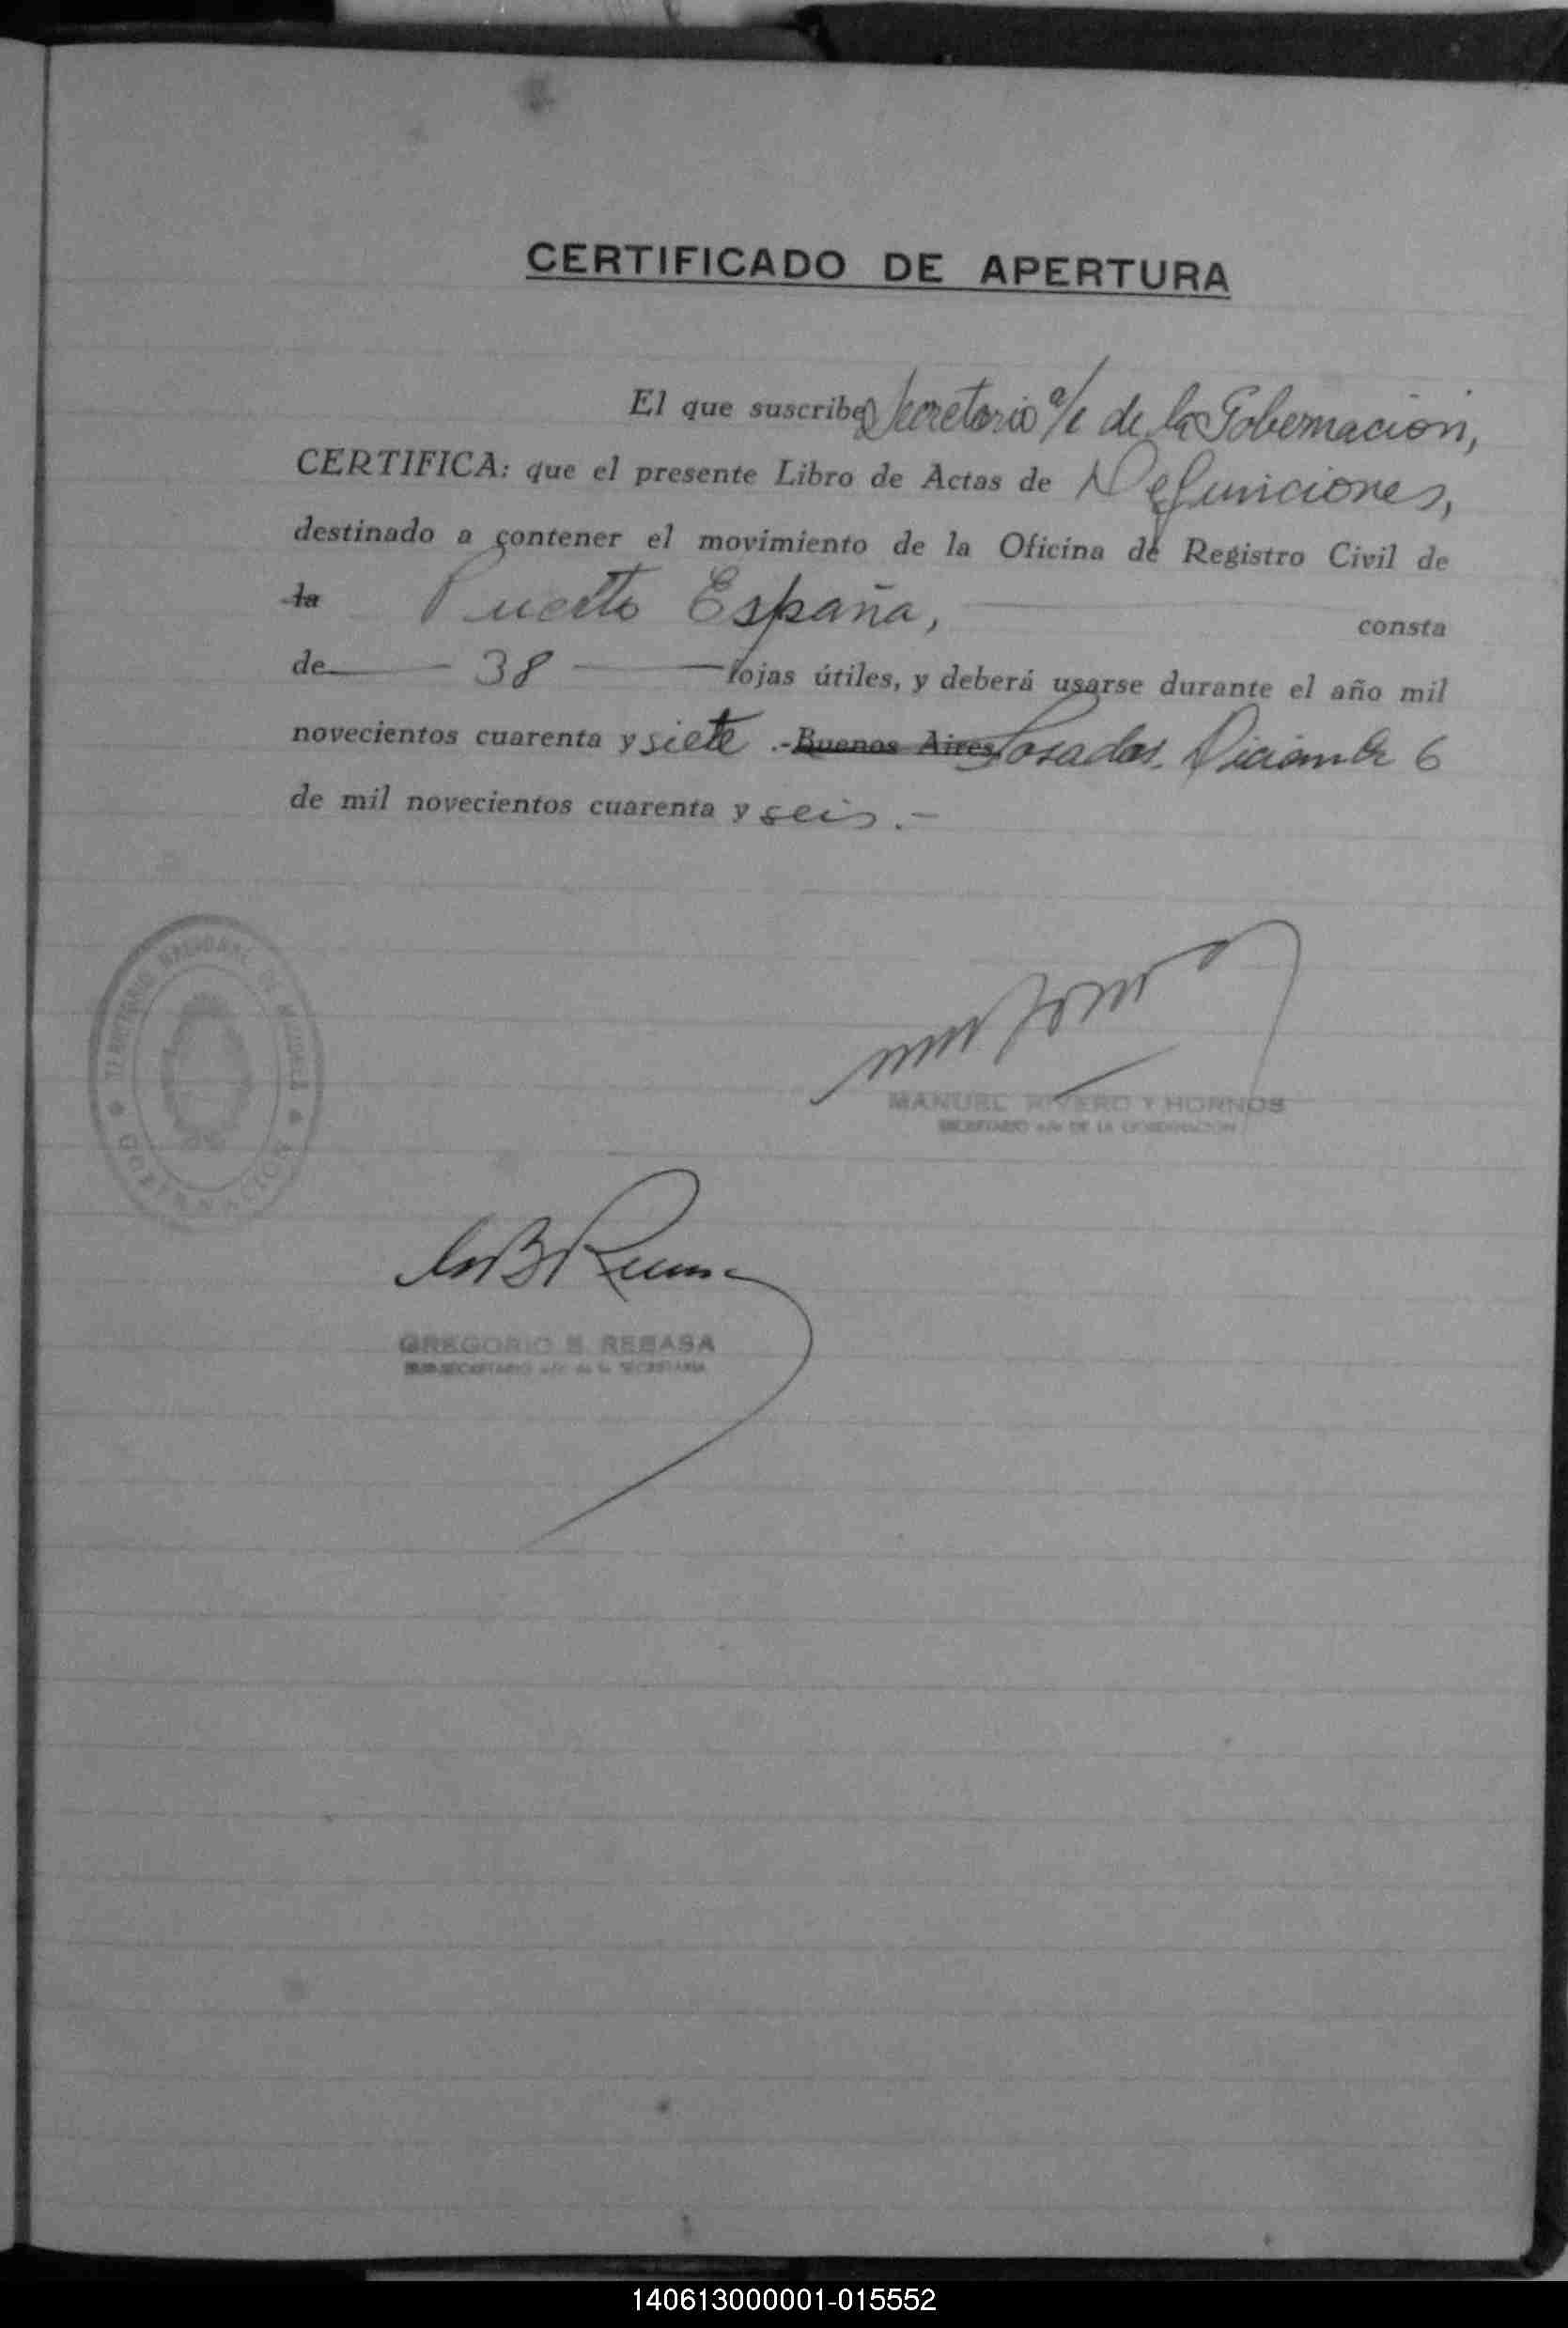 CERTIFICADO DE APERTURA
El que suscribe, Secretario a/c de la Gobernación,
CERTIFICA: que el presente Libro de Actas de Defunciones,
destinado a contener el movimiento de la Oficina de Registro Civil de
la Puerto España, consta
de 38 fojas útiles, y deberá usarse durante el año mil
novecientos cuarenta y siete .- Buenos Aires, Posadas, Diciembre 6
de mil novecientos cuarenta y seis.-
TERRITORIO NACIONAL DE MISIONES
GOBERNACION
MANUEL RIVERO Y HORNOS
SECRETARIO a/c DE LA GOBERNACION
GREGORIO B. REBASA
SUB-SECRETARIO a/c de la SECRETARIA
140613000001-015552